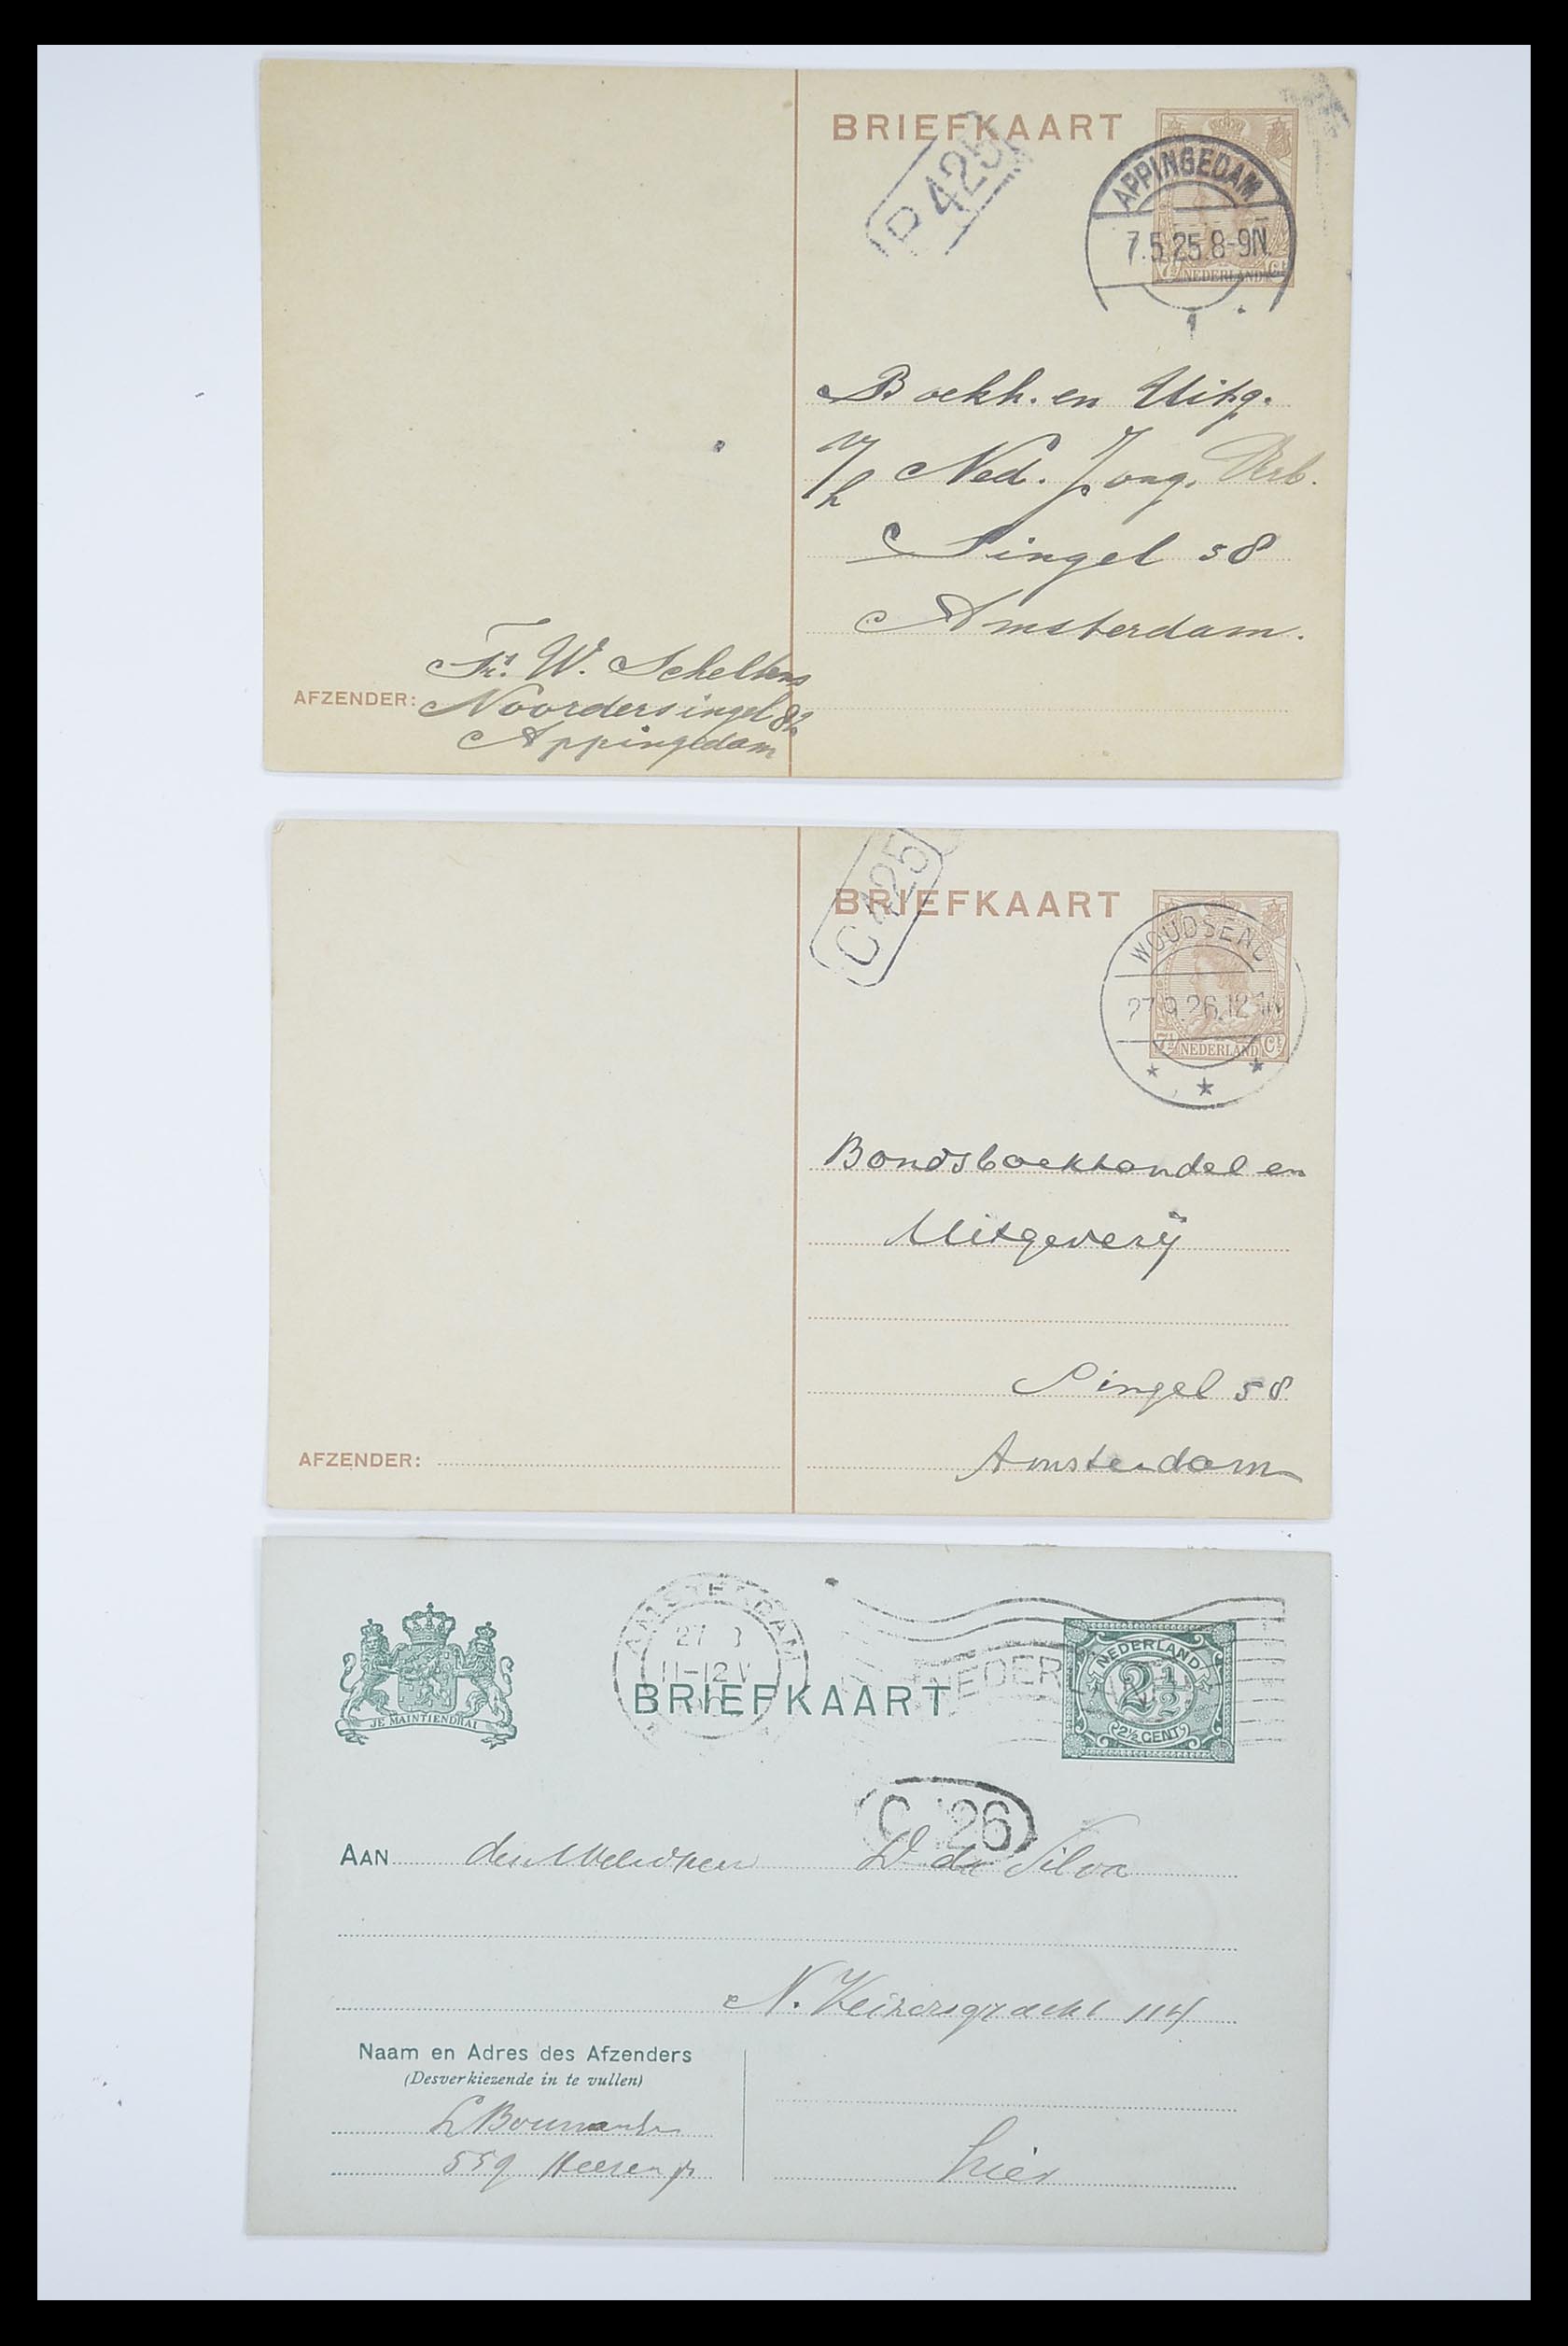 BRIEFKAART
425
APPINGEDAM
7.5.25.8-9N
1
7½ NEDERLAND Ct
Boekh. en Uitg.
v/h Ned. Jong. Verb.
Singel 58
Amsterdam.
W. Scheltens
AFZENDER: Noordersingel 82
Appingedam
C 425
BRIEFKAART
WOUDSEND
27.9.26.12-1N
7½ NEDERLAND Ct
Bondsboekhandel en
Uitgeverij
Singel 58
Amsterdam
AFZENDER:
AMSTERDAM
27
11-12V
JE MAINTIENDRAI
BRIEFKAART
NEDERLAND
2½
2½ CENT
C 26
AAN den Weledheer D da Silva
N. Keizersgracht 114
Naam en Adres des Afzenders
(Desverkiezende in te vullen)
559 Heerengr
hier